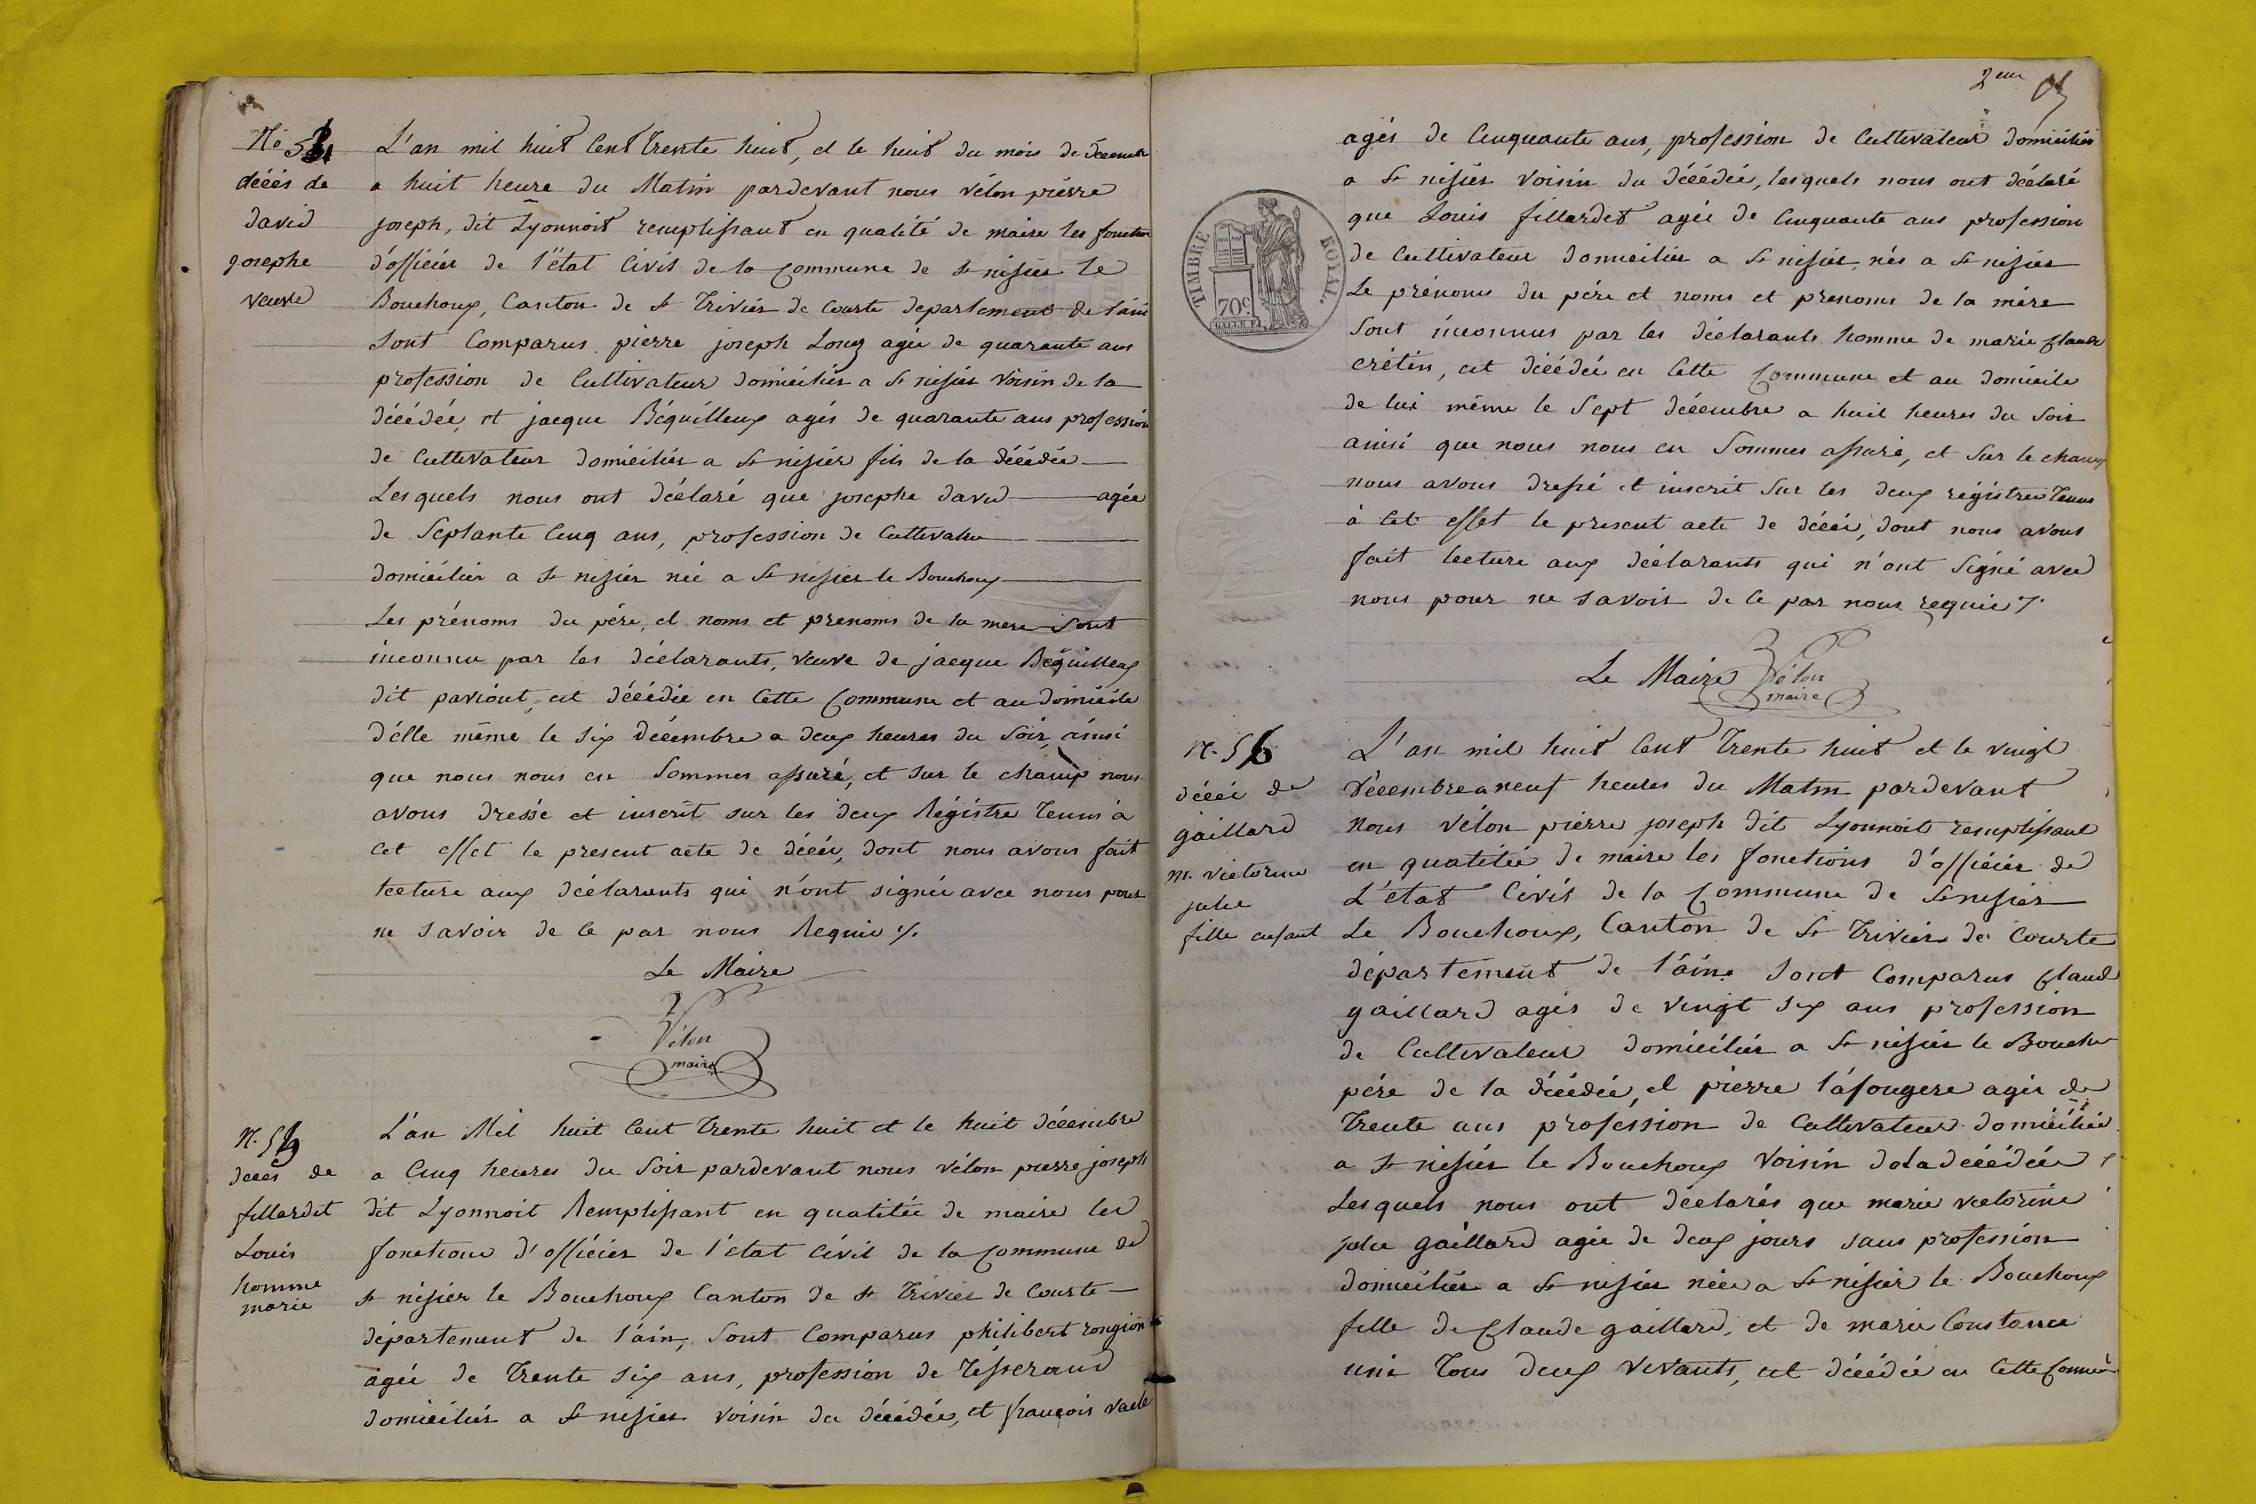 décès de
david
josephe
veuve
L'an mil huit Cent trente huit, et le huit du mois de décembre
a huit heure du Matin pardevant nous vélon piérre
joseph, dit Lyonnoit remplissant en qualité de maire les fonction
d'officiér de l'état Civil de la Commune de st nisiér le
Bouchoux, Canton de st Triviér de Courte departement de l'ain
sont Comparus pièrre joseph Long agée de quarante ans
profession de Cultivateur domiciliér a St nisiér Voisin de la
décédée, et jacque Béquilleux agés de quarante ans profession
de Cultivateur domiciliér a St nisiér fils de la décédée
Lesquels nous ont déclaré que josephe david agée
de Septante Cinq ans, profession de Cultivateur
domiciliér a St nisiér née a St nisiér le Bouchoux
Les prénoms du pére, et noms et prenoms de la mere sont
inconnu par les déclarants, veuve de jacque Béquilleux
dit paviout, est décédée en Cette Commune et au domicile
d'élle même le six décembre a deux heures du Soir, ainsi
que nous nous en Sommes assuré, et sur le champ nous
avons dressé et inscrit sur les deux Régistre tenus à
Cet effet le present acte de décés, dont nous avons fait
lecture aux déclarants qui n'ont signée avec nous pour
ne savoir de Ce par nous Requis %.
Le Maire
Vélon
maire
décés de
fillardet
Louis
homme
marie
L'an Mil huit Cent trente huit et le huit décembre
a Cinq heures du Soir pardevant nous vélon pierre joseph
dit Lyonnoit Remplissant en qualitée de maire les
fonctions d'officiér de l'état Civil de la Commune de
st nisiér le Bouchoux Canton de st Triviér de Courte
département de l'ain, Sont Comparus philibert rongion
agée de trente six ans, profession de Tisserand
domiciliér a St nisiér voisin du décédés, et françois vacle
2eme
agés de Cinquante ans, profession de Cultivateur domiciliér
a St nisiér Voisin du décédée, lesquels nous ont déclaré
que Louis fillardet agée de Cinquante ans profession
de Cultivateur domiciliér a St nisiér, nés a St nisiér
Le prénoms du pére et noms et prenoms de la mére
Sont inconnus par les déclarants homme de marie Claude
crétin, est décédée en Cette Commune et au domicile
de lui même le Sept décembre a huit heures du Soir
ainsi que nous nous en Sommes assuré, et Sur le champ
nous avons dressé et inscrit Sur les deux régistre tenus
à Cet effet le present acte de décés, dont nous avons
fait lecture aux déclarants qui n'ont Signé avec
nous pour ne savoir de Ce par nous requis %.
TIMBRE ROYAL.
70c.
Le Maire Vélon
maire
N. 56
décés de
gaillard
m. victorine
julie
fille enfant
L'an mil huit Cent trente huit et le vingt
décembre a neuf heures du Matin pardevant
Nous vélon pierre joseph dit Lyonnoit remplissant
en qualitée de maire les fonctions d'officiér de
L'état Civil de la Commune de St nisiér
Le Bouchoux, Canton de St Triviér de Courte
département de l'ain Sont Comparus Claude
gaillard agés de vingt six ans profession
de Cultivateur domiciliér a St nisiér le Bouchoux
pére de la décédée, et pierre lafougere agés de
trente ans profession de Cultivateur domiciliée
a St nisiér le Bouchoux Voisin de la décédée
Lesquels nous ont déclarés que marie victorine
julie gaillard agée de deux jours sans profession
domiciliér a St nisiér née a St nisiér le Bouchoux
fille de Claude gaillard, et de marie Constance
uni tous deux vivants, est décédée en Cette Commune